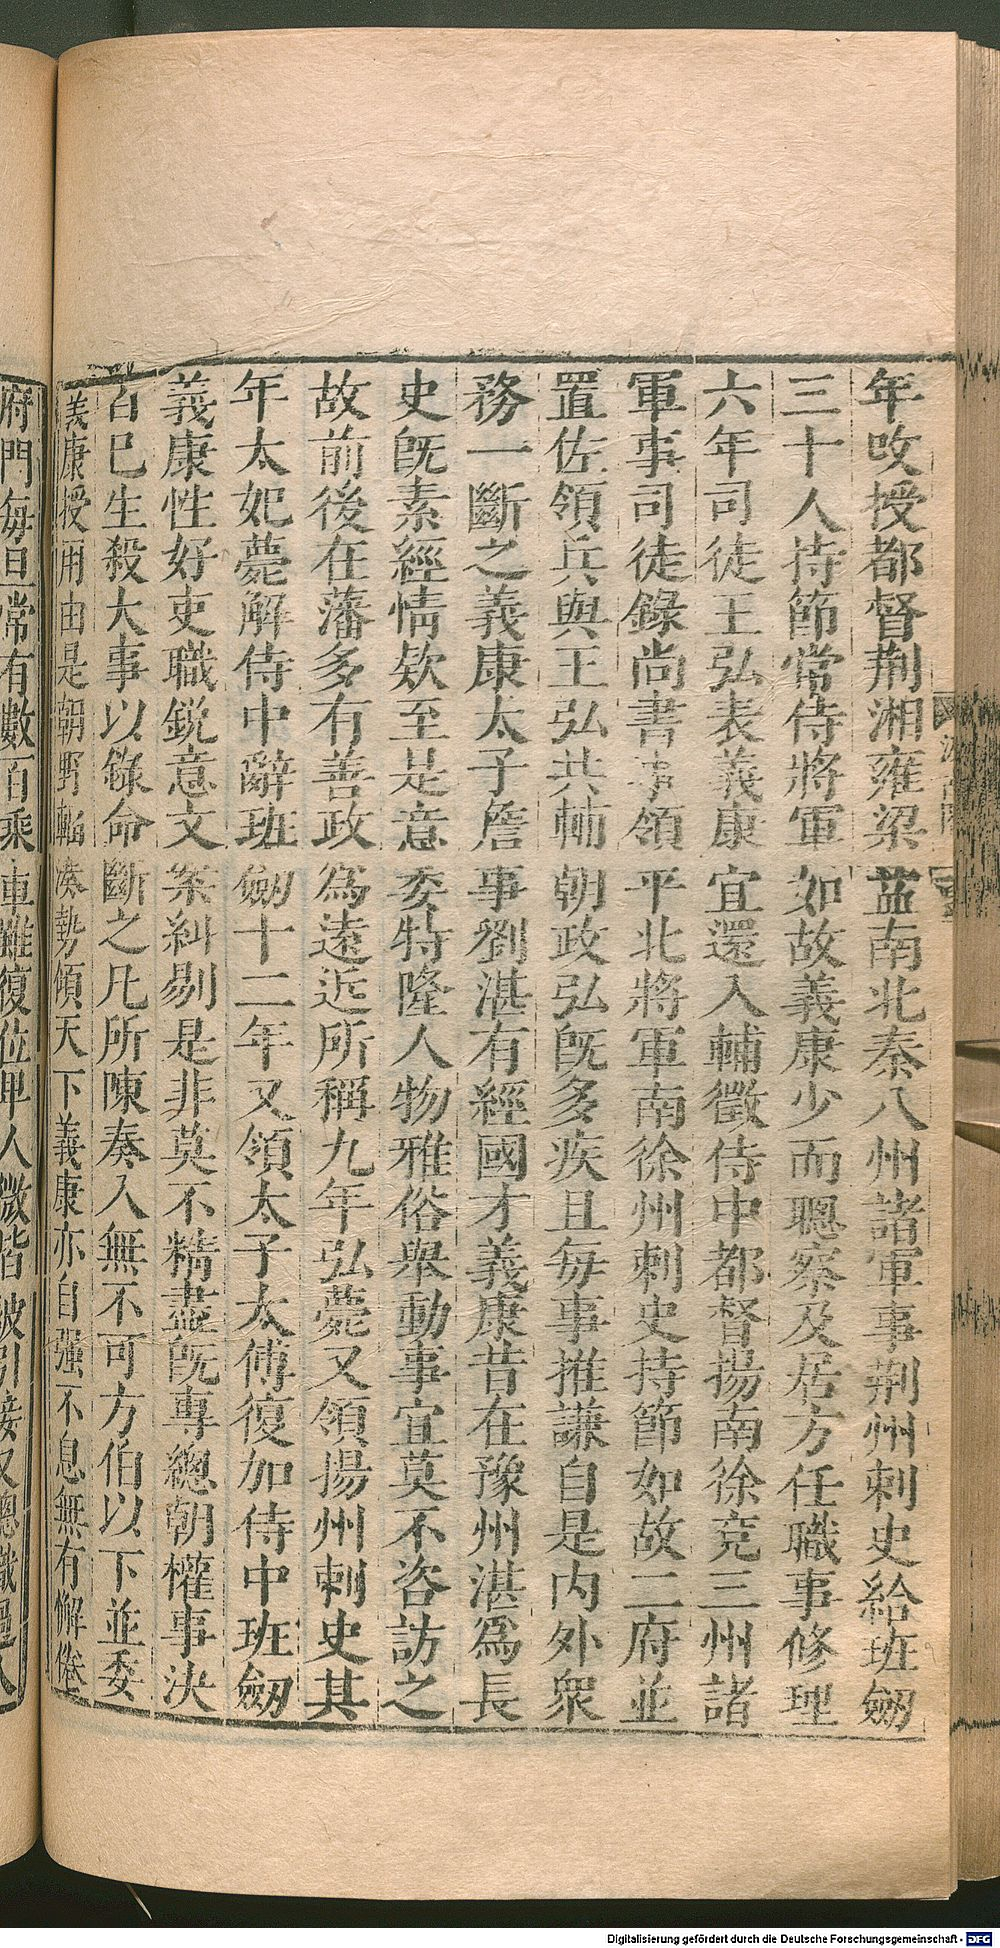 年攺授都督荆湘雍梁益南北秦八州諸軍事荆州刺史給班劒
三十人持節常侍將軍如故義康少而聰察及居方任職事修理
六年司徒王弘表義康宜還入輔徵侍中都督揚南徐兗三州諸
軍事司徒錄尚書事領平北將軍南徐州刺史持節如故二府並
置佐領兵與王弘共輔朝政弘旣多疾且每事推謙自是内外衆
務一斷之義康太子詹事劉湛有經國才義康昔在豫州湛爲長
史旣素經情欵至是意委特隆人物雅俗舉動事宜莫不咨訪之
故前後在藩多有善政爲遠近所稱九年弘薨又領揚州刺史其
年太妃薨解侍中辭班劒十二年又領太子太傅復加侍中班劒
義康性好吏職鋭意文案糾剔是非莫不精盡旣專總朝權事決
自巳生殺大事以錄命斷之凡所陳奏入無不可方伯以下並委
義康授用由是朝野輻湊勢傾天下義康亦自强不息無有懈倦
府門每旦常有數百乘車雖復位卑人微皆被引接又聰識過人
Digitalisierung gefördert durch die Deutsche Forschungsgemeinschaft - DFG